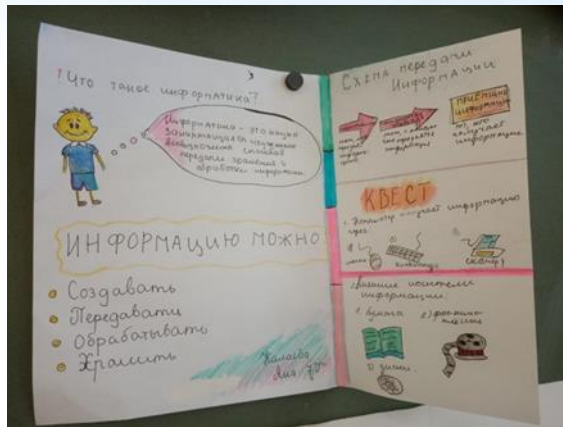 ! Что такое информатика?
Информатика – это наука
занимающаяся изучением
всевозможных способов
передачи, хранения и
обработки информации
ИНФОРМАЦИЮ МОЖНО
Создавать
Передавать
Обрабатывать
Хранить
7"Г"
Схема передачи
Информации
ПРИЁМНИК
ИНФОРМАЦИИ
тот, кто
получает
информацию
КВЕСТ
1. Компьютер получает информацию
через
мышь
клавиатура
сканер
2. Внешние носители
информации:
1. бумага
3) диски